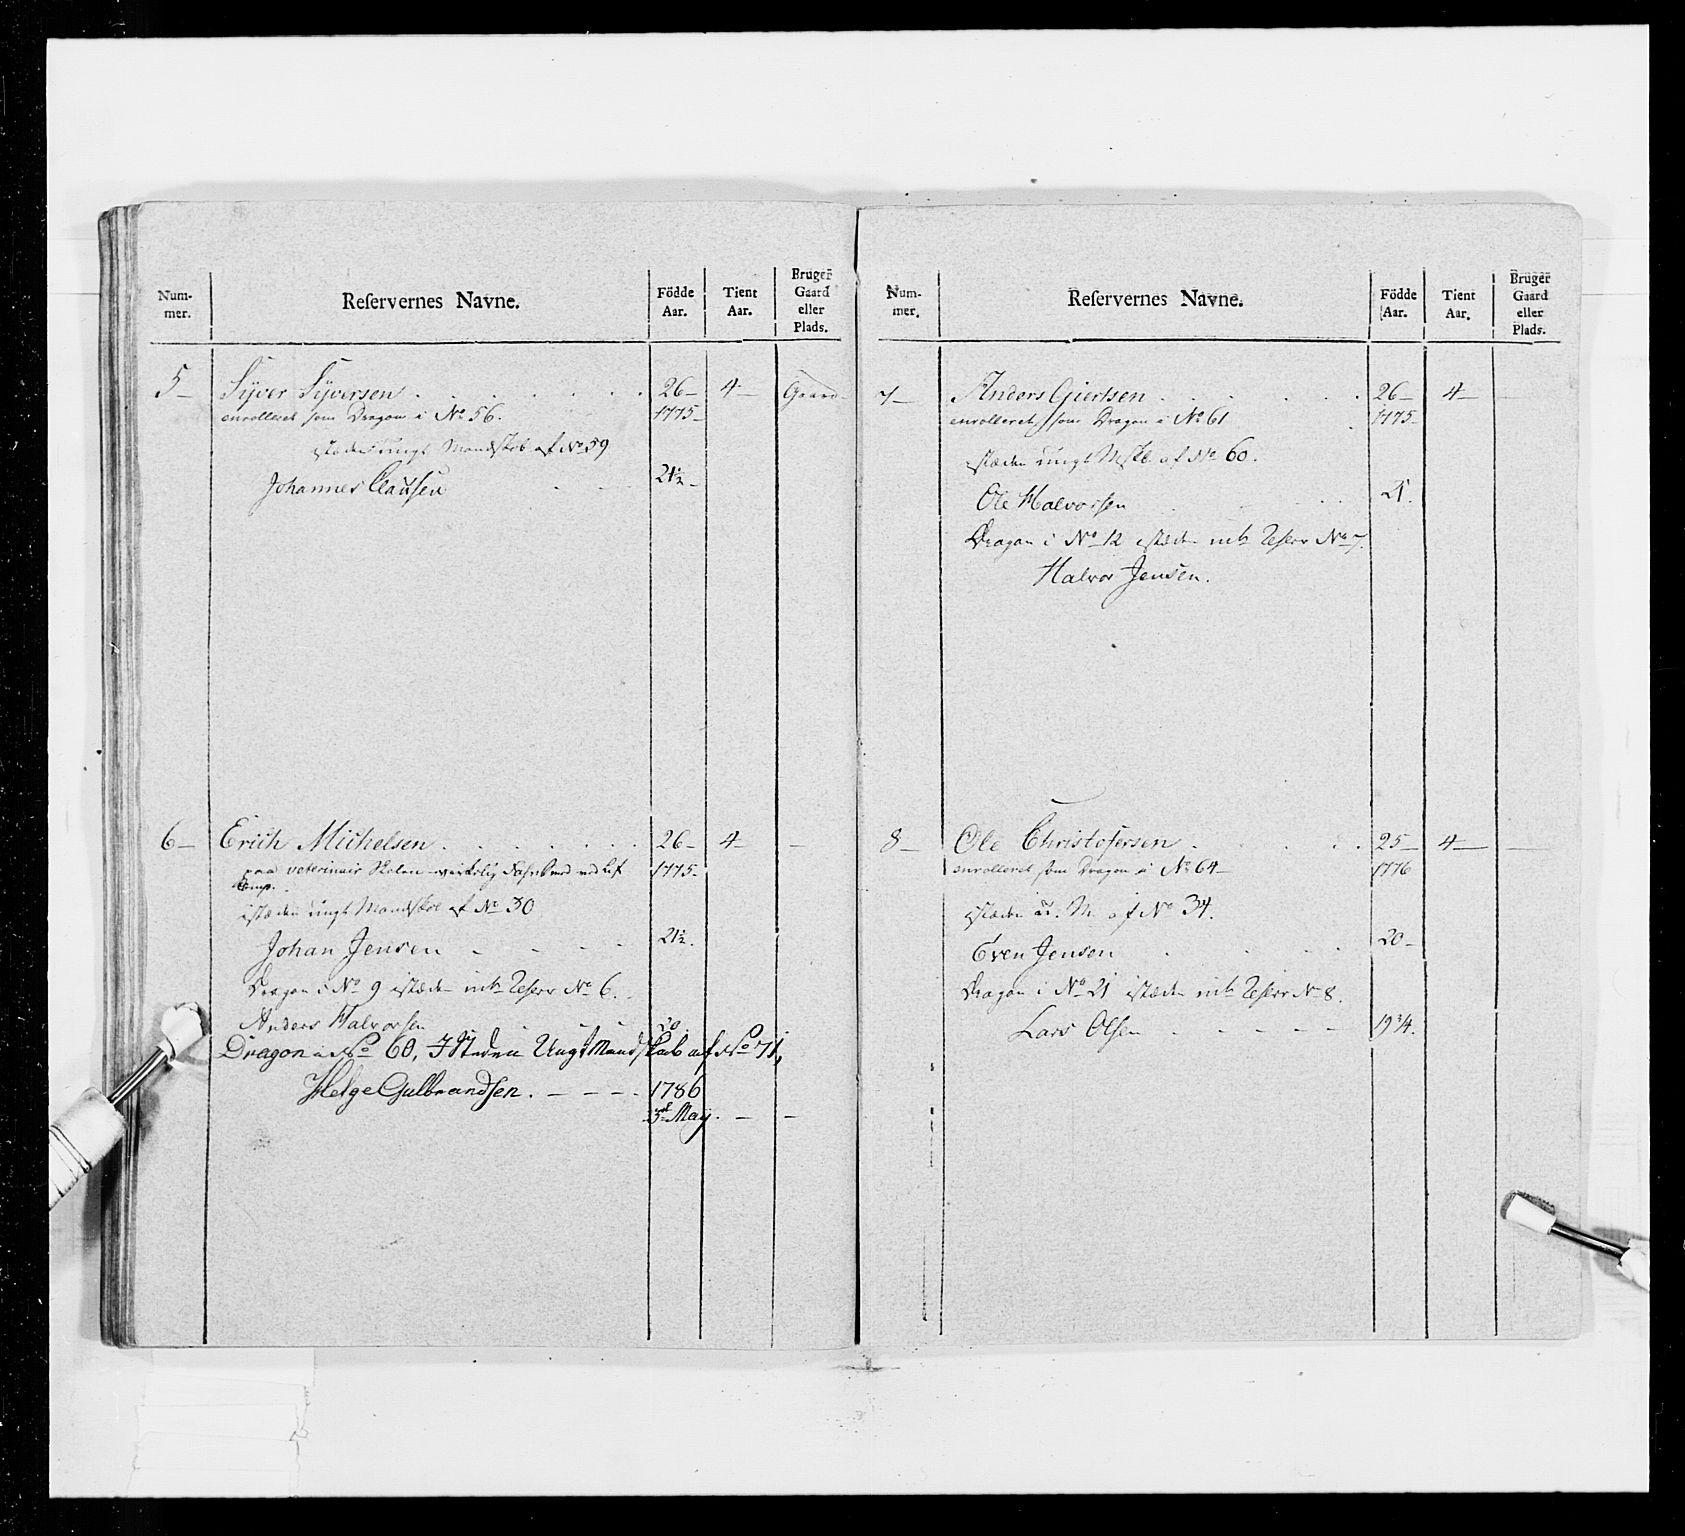 Num-
mer.
Reservernes Navne.
Födde
Aar.
Tient
Aar.
Bruger
Gaard
eller
Plads.
5 - Syver Syversen . . . . . . 26 - 4 - Gaard -
enrolleret som Dragon i No 56. 1775 -
istæden ungt Mandskab af No 59
Johannes Clausen - - 21½ -
6 - Erich Michelsen . . . . . . 26 - 4 - -
paa veterinair Skolen - virkelig ved Lif 1775 -
Comp.
istæden ungt Mandskab af No 30
Johan Jensen - - - - 21½.
Dragon i No 9 istæden Reserv No 6.
Anders Halvorsen - - - 20
Dragon i No 60, I Steden Ungt Mandskab af No 71,
Helge Gulbrandsen . - - - . 1786
May. - -
Num-
mer.
Reservernes Navne.
Födde
Aar.
Tient
Aar.
Bruger
Gaard
eller
Plads.
7 - Anders Giertsen . . . . . 26 - 4 - -
enrolleret som Dragon i No 61 . 1775 -
istæden ungt Mskb. af No 60.
Ole Halvorsen . - . . 21.
Dragon i No 12 istæden Reserv No 7.
Halvor Jensen.
8 - Ole Christofersen . . . . . 25 - 4 - -
enrolleret som Dragon i No 64 - 1776
istæden u. M. af No 34.
Even Jensen . - - . 20 -
Dragon i No 21 istæden Reserv No 8.
Lars Olsen . - - - - 19¾.